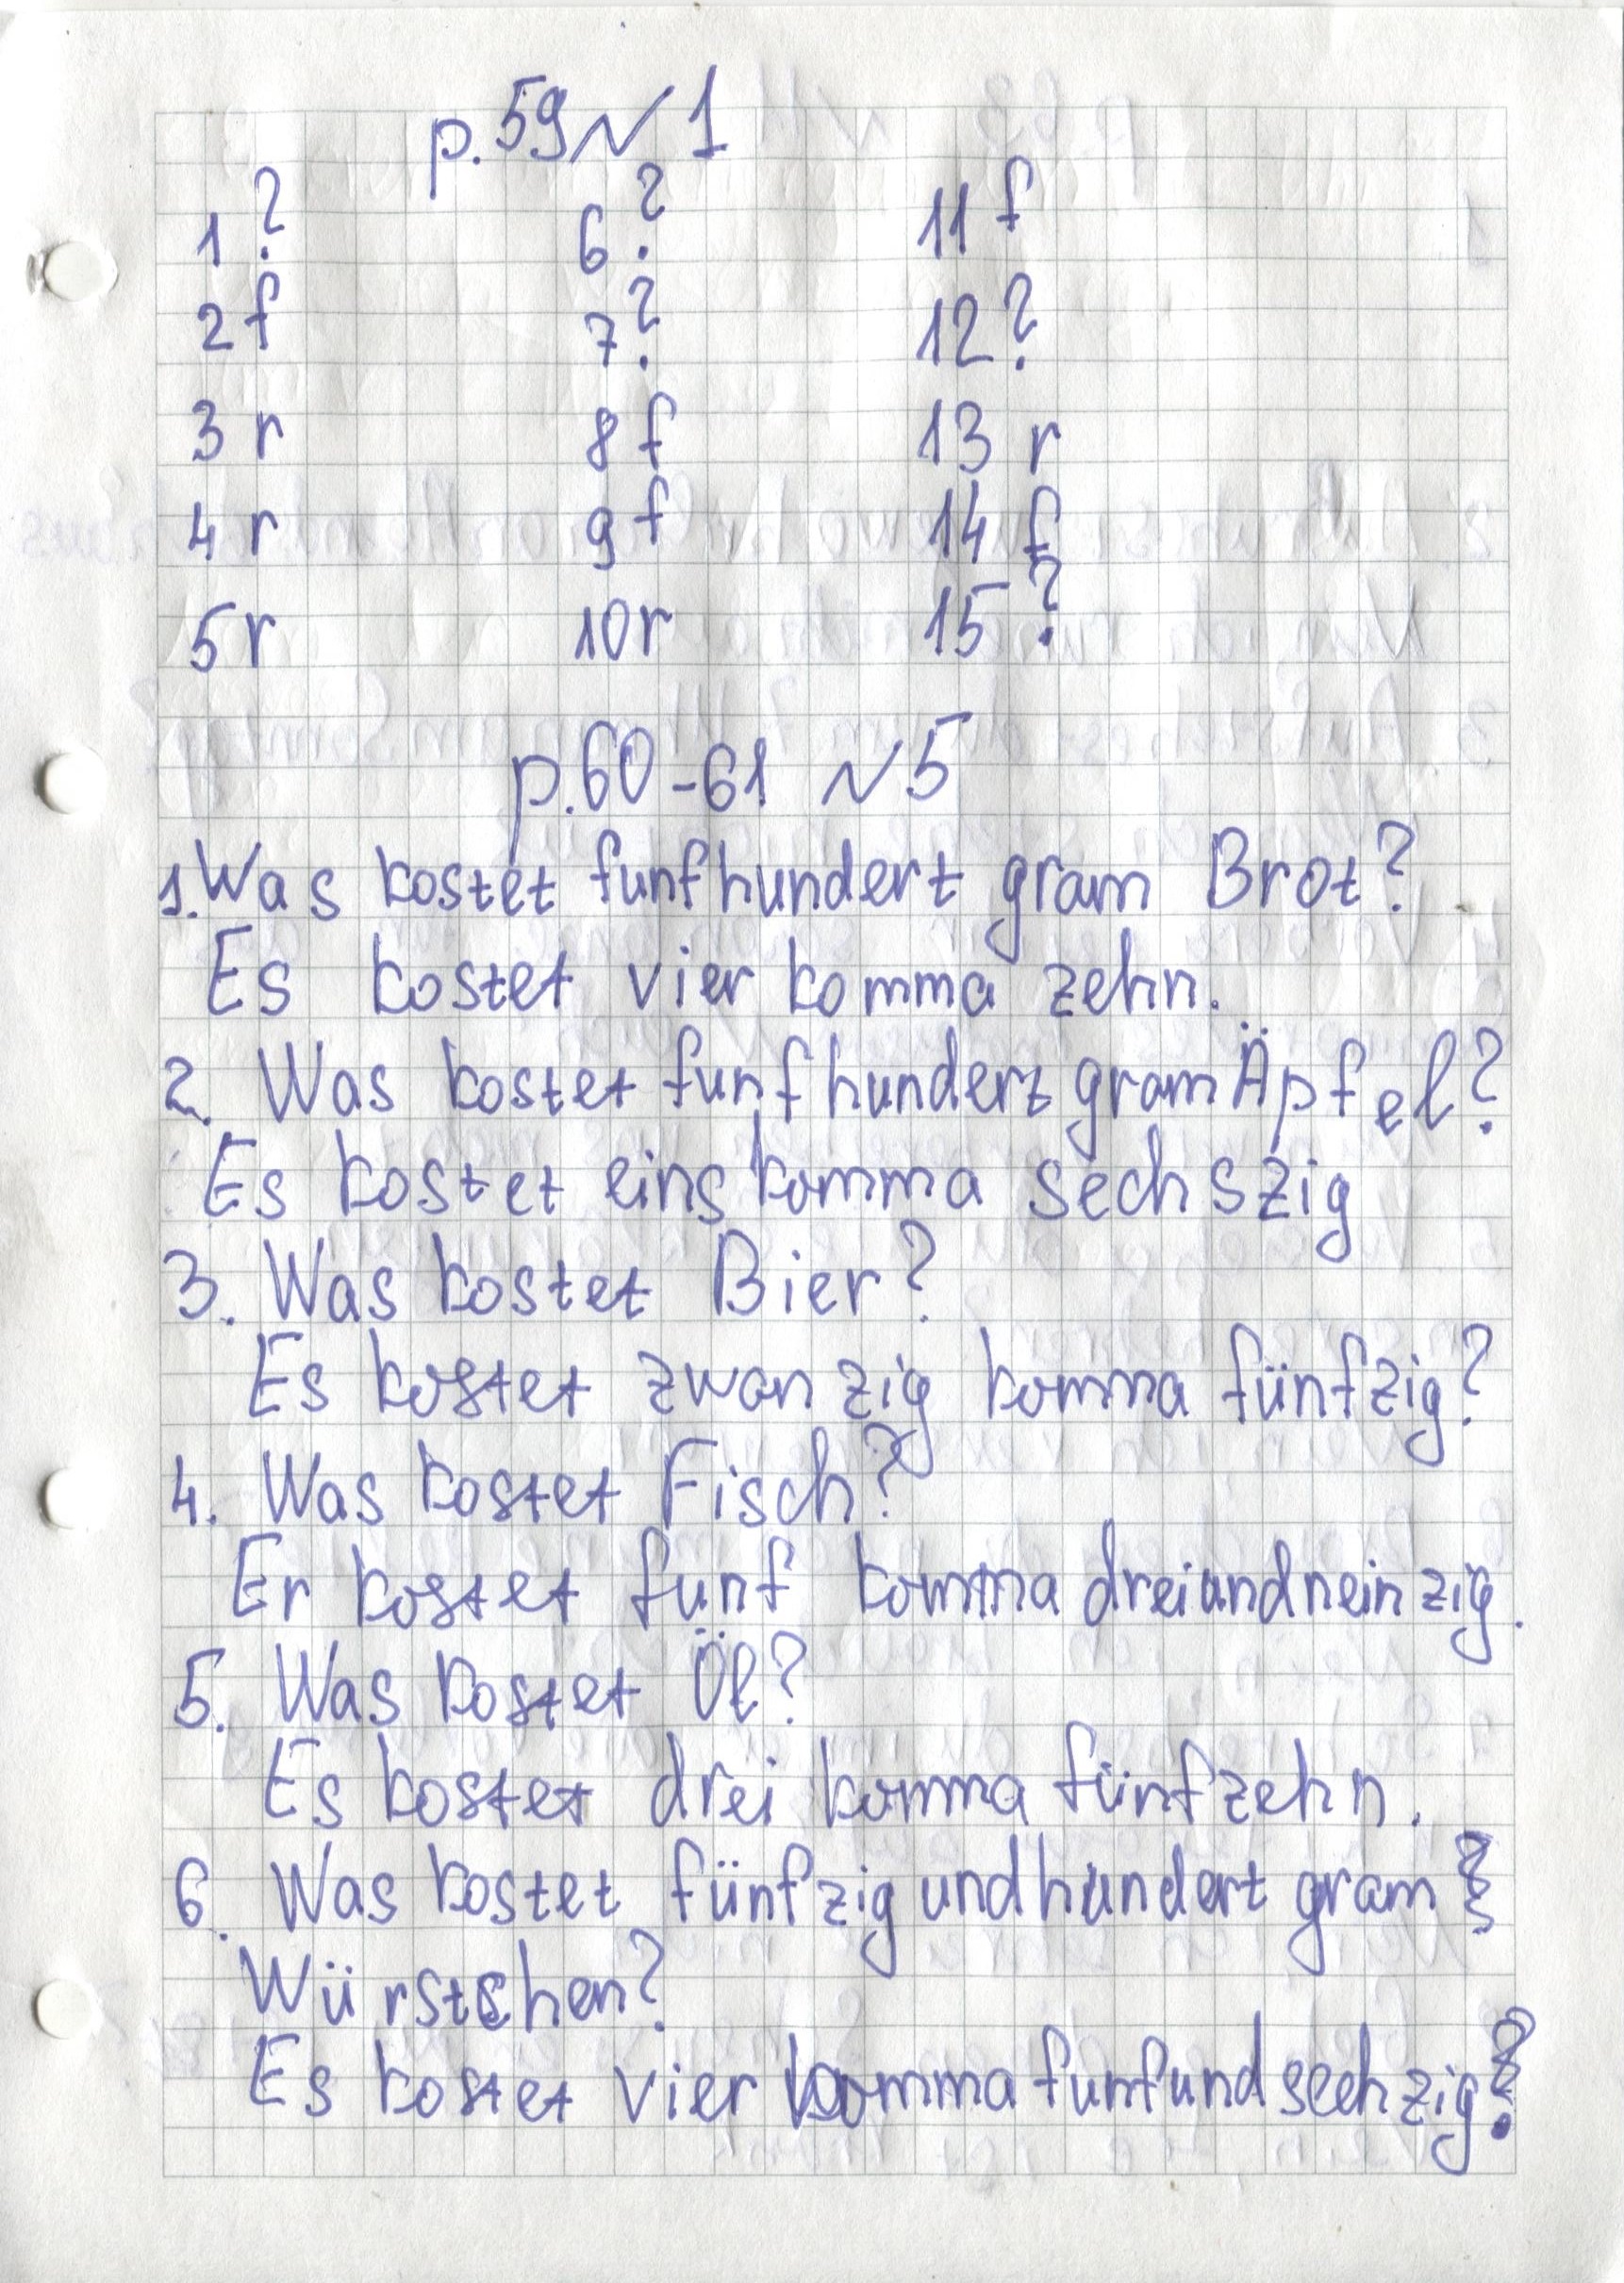 p. 59 № 1
1 ? 6 ? 11 f
2 f 7 ? 12 ?
3 r 8 f 13 r
4 r 9 f 14 f
5 r 10 r 15 ?
p. 60-61 № 5
1. Was kostet funfhundert gram Brot?
Es kostet vier komma zehn.
2. Was kostet funfhundert gram Äpfel?
Es kostet eins komma sechszig
3. Was kostet Bier?
Es kostet zwanzig komma fünfzig?
4. Was kostet Fisch?
Er kostet funf komma dreiundneinzig.
5. Was kostet Öl?
Es kostet drei komma fünfzehn.
6. Was kostet fünfzigundhundert gram
Würstchen?
Es kostet vier komma funfundsechzig?